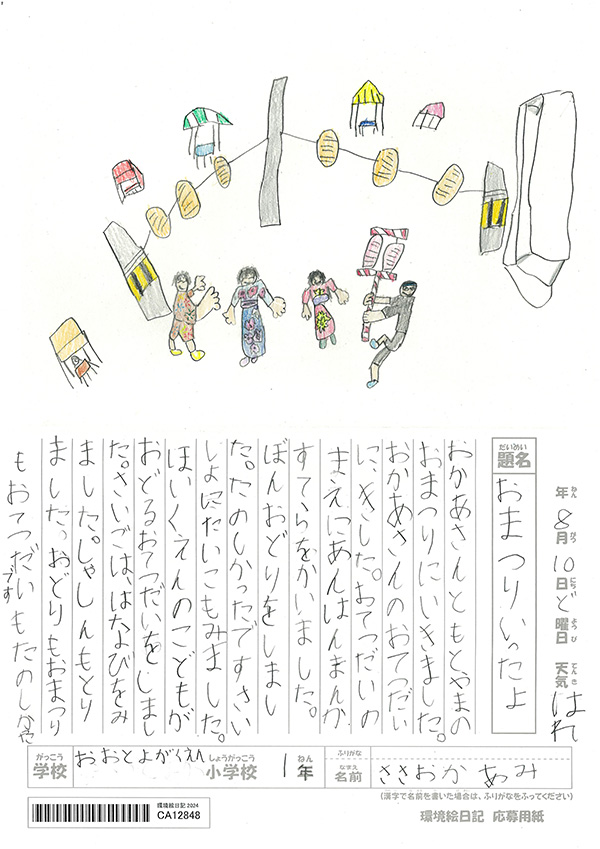 年 8月 10日 ど曜日 天気 はれ
ねん がつ にち ようび てんき
だいめい
題名
おまつりいったよ
おかあさんともとやまの
おまつりにいきました。
おかあさんのおてつだい
にきました。おてつだいの
まえにあんぱんまんか
すてらをかいました。
ぼんおどりをしまし
た。たのしかったですさい
しょにたいこもみました。
ほいくえんのこどもが
おどるおてつだいをしまし
た。さいごは、はなびをみ
ました。しゃしんもとり
ました。おどりもおまつり
もおてつだいもたのしかった
です
がっこう
学校
おおとよがくえん
しょうがっこう
小学校
1年
ねん
ふりがな
なまえ
名前
ささおか あみ
(漢字で名前を書いた場合は、ふりがなをふってください)
環境絵日記 2024
CA12848
環境絵日記 応募用紙